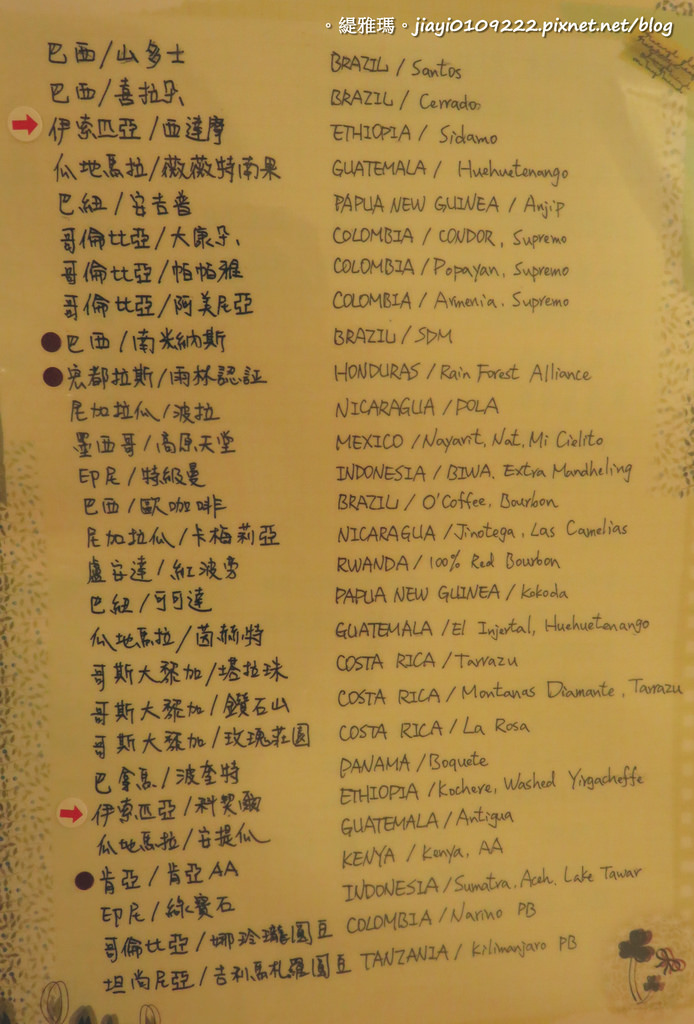 。緹雅瑪。jiayi0109222.pixnet.net/blog
巴西/山多士 BRAZIL / Santos
巴西/喜拉朵 BRAZIL / Cerrado
伊索匹亞/西達摩 ETHIOPIA / Sidamo
瓜地馬拉/薇薇特南果 GUATEMALA / Huehuetenango
巴紐/安吉普 PAPUA NEW GUINEA / Anjip
哥倫比亞/大康朵 COLOMBIA / CONDOR, Supremo
哥倫比亞/帕帕雅 COLOMBIA / Popayan, Supremo
哥倫比亞/阿美尼亞 COLOMBIA / Armenia. Supremo
巴西/南米納斯 BRAZIL / SDM
宏都拉斯/雨林認証 HONDURAS / Rain Forest Alliance
尼加拉瓜/波拉 NICARAGUA / POLA
墨西哥/高原天堂 MEXICO / Nayarit, Nat, Mi Cielito
印尼/特級曼 INDONESIA / BIWA, Extra Mandheling
巴西/歐咖啡 BRAZIL / O'Coffee, Bourbon
尼加拉瓜/卡梅莉亞 NICARAGUA / Jinotega, Las Camelias
盧安達/紅波旁 RWANDA / 100% Red Bourbon
巴紐/可可達 PAPUA NEW GUINEA / Kokoda
瓜地馬拉/茵赫特 GUATEMALA / El Injertal, Huehuetenango
哥斯大黎加/塔拉珠 COSTA RICA / Tarrazu
哥斯大黎加/鑽石山 COSTA RICA / Montanas Diamante, Tarrazu
哥斯大黎加/玫瑰莊園 COSTA RICA / La Rosa
巴拿馬/波奎特 PANAMA / Boquete
伊索匹亞/科契爾 ETHIOPIA / Kochere, Washed Yirgacheffe
瓜地馬拉/安提瓜 GUATEMALA / Antigua
肯亞/肯亞AA KENYA / Kenya, AA
印尼/綠寶石 INDONESIA / Sumatra, Aceh, Lake Tawar
哥倫比亞/娜玲瓏圓豆 COLOMBIA / Narino PB
坦尚尼亞/吉利馬札羅圓豆 TANZANIA / Kilimanjaro PB